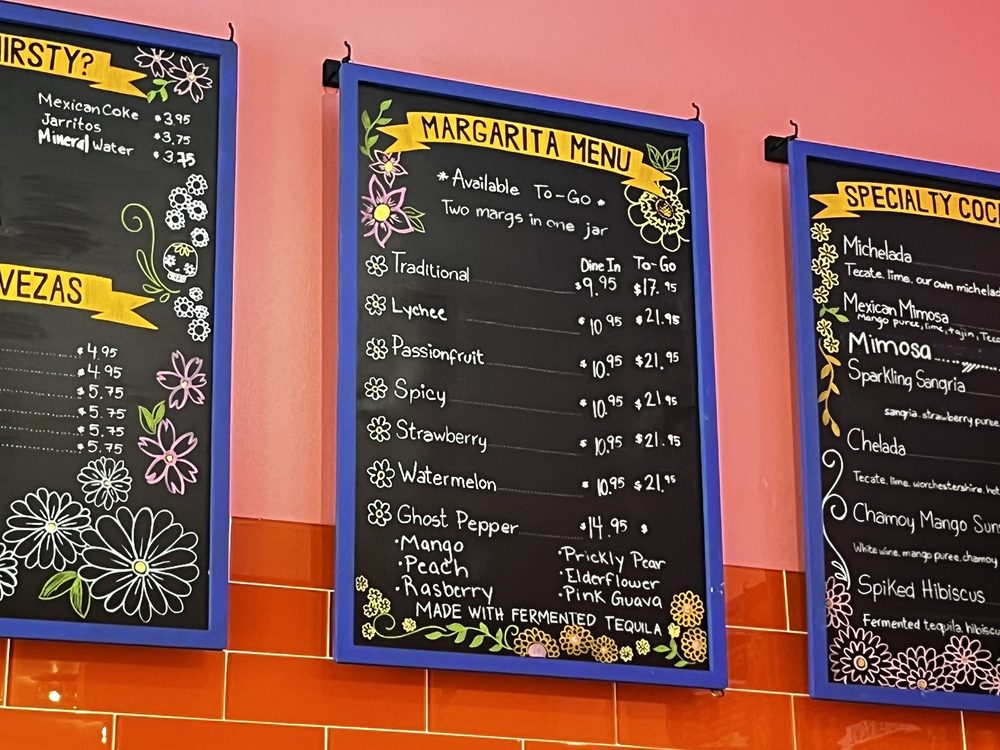 IRSTY?
Mexican Coke $3.95
Jarritos $3.75
Mineral Water $3.75
VEZAS
$4.95
$4.95
$5.75
$5.75
$5.75
$5.75
MARGARITA MENU
*Available To-Go*
Two margs in one jar
Dine In To-Go
Traditional $9.95 $17.95
Lychee $10.95 $21.95
Passionfruit $10.95 $21.95
Spicy $10.95 $21.95
Strawberry $10.95 $21.95
Watermelon $10.95 $21.95
Ghost Pepper $14.95 $
·Mango ·Prickly Pear
·Peach ·Elderflower
·Rasberry ·Pink Guava
MADE WITH FERMENTED TEQUILA
SPECIALTY COC
Michelada
Tecate, lime, our own michelad
Mexican Mimosa
Mango puree, lime, tajin, Teca
Mimosa
Sparkling Sangria
sangria, strawberry puree
Chelada
Tecate, lime, worchestershire, hot
Chamoy Mango Sun
White wine, mango puree, chamoy
Spiked Hibiscus
Fermented tequila, hibiscu